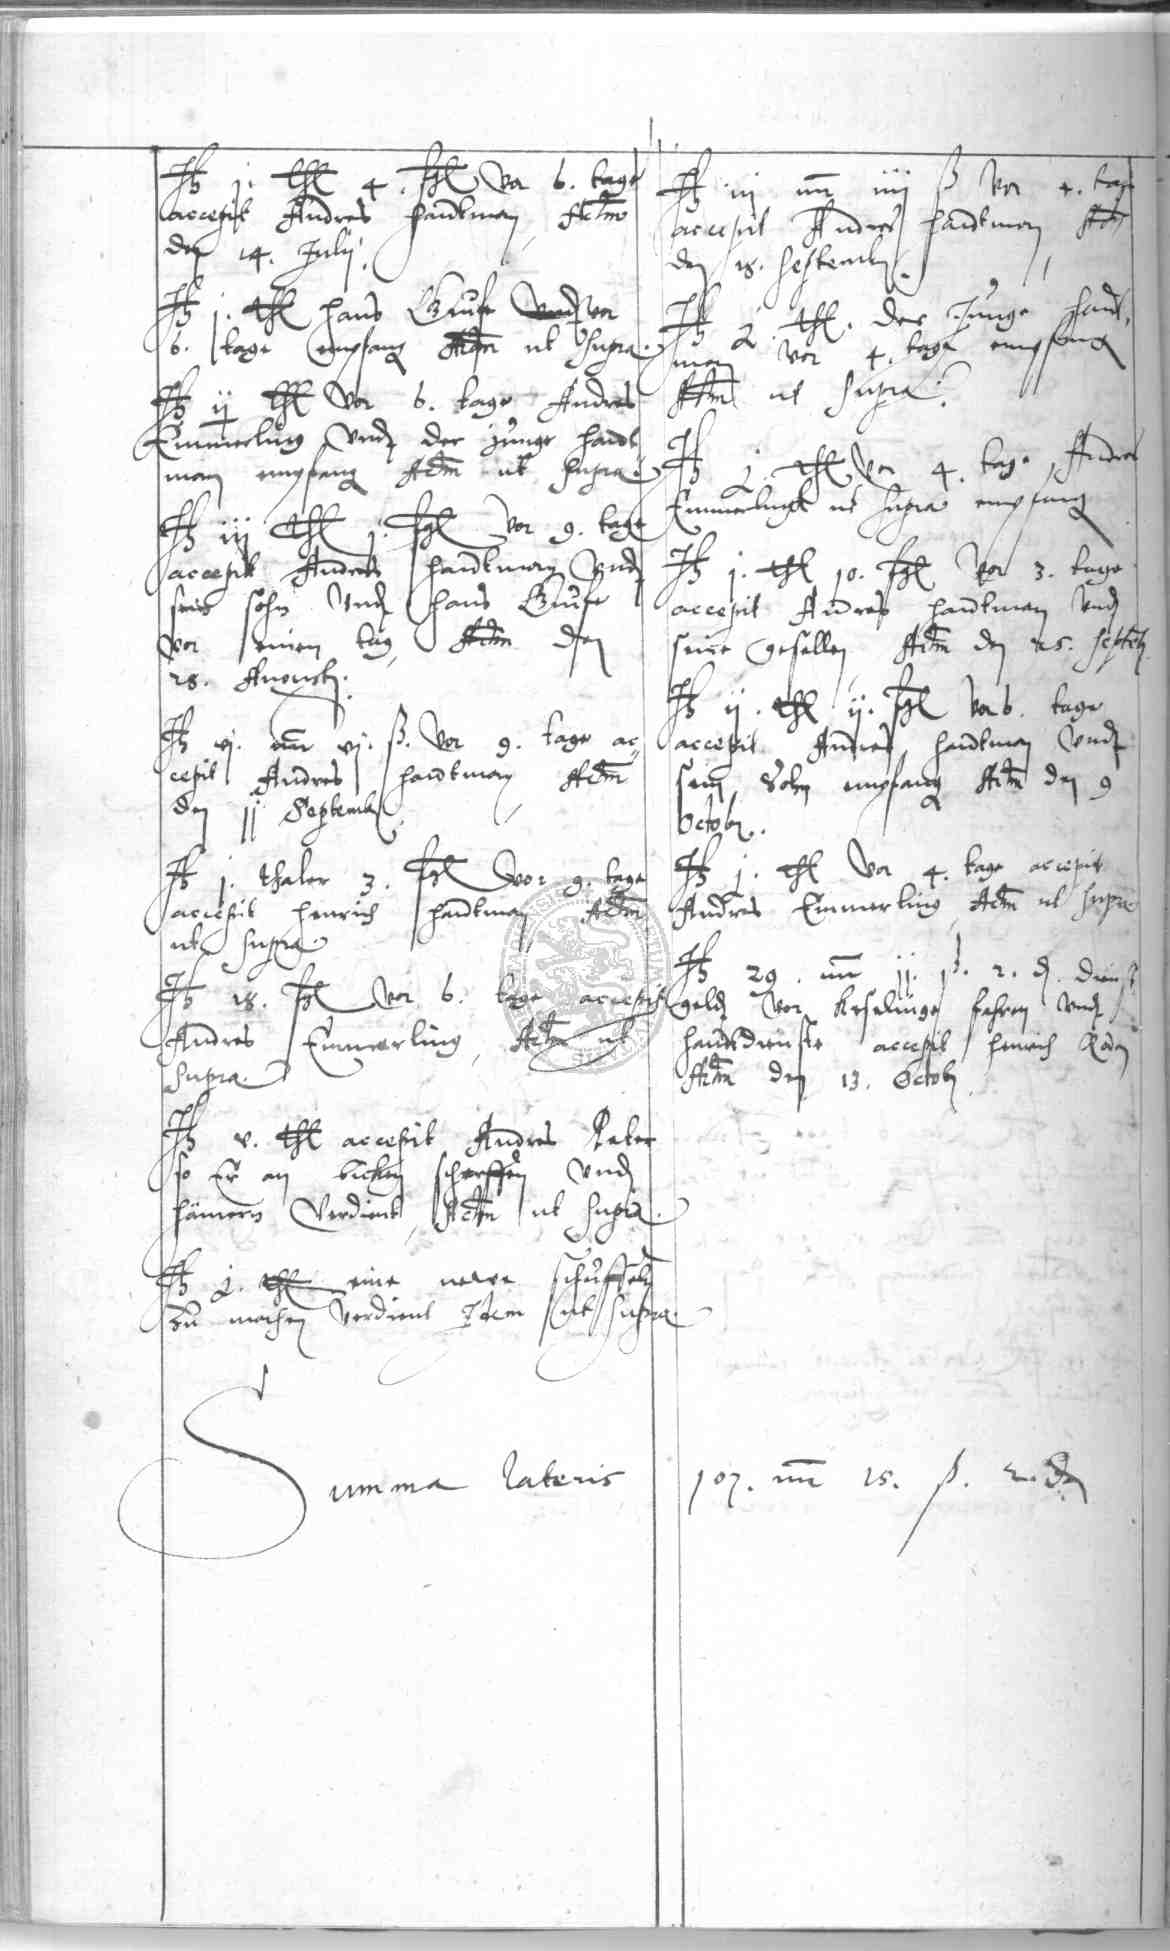 It 1. thl 4. sgl vor 6. tage
accepit Andres Handtman, Actum
den 14. Julij.
It 1. thl Hans vor
6. tage empfang Actum ut supra.
It ij thl vor 6. tage Andres
Emmerling und der junge Handt
man empfang Actum ut supra.
It iij thl 1. sgl vor 9. tage
accepit Andres Handtman und
sein sohn und Hans
vor einen tag, Actum den
28. Augusti.
It vj. mr vj. ß. vor 9. tage ac
cepit Andres Handtman Actum
den jj September.
It 1. thaler 3. sgl vor 9. tage
accepit Henrich Handtman, Actum
ut supra.
It 18. sgl vor 6. tage accepit
Andres Emmerling, Actum ut
supra.
It v. thl accepit Andres Peter
so Er an bicken scherffen und
hämern verdient, Actum ut supra.
It eine newe schuffeln
zu machen verdient Item ut supra.
It iij mr iiij ß vor 4. tag
accepit Andres Handtman Actum
den 18. Septembr.
It thl. der Junge Handt
man vor 4. tage empfang
Actum ut supra.
It thl vor 4. tage Andres
Emmerlingk ut supra empfang
It 1. thl 10. sgl vor 3. tage
accepit Andres Handtman und
seine gesellen Actum den 25. Septemb.
It ij. thl ij. sgl vor 6. tage
accepit Andres Handtman und
sein Sohn empfang Actum den 9
Octobr.
It 1. thl vor 4. tage accepit
Andres Emmerling, Actum ut supra
It 29. mr jj. ß. 2. d. dienst
geldt vor fahren und
handtdienste accepit Henrich
Actum den 13. Octob.
Summa lateris 107. mr 15. ß. 2. d